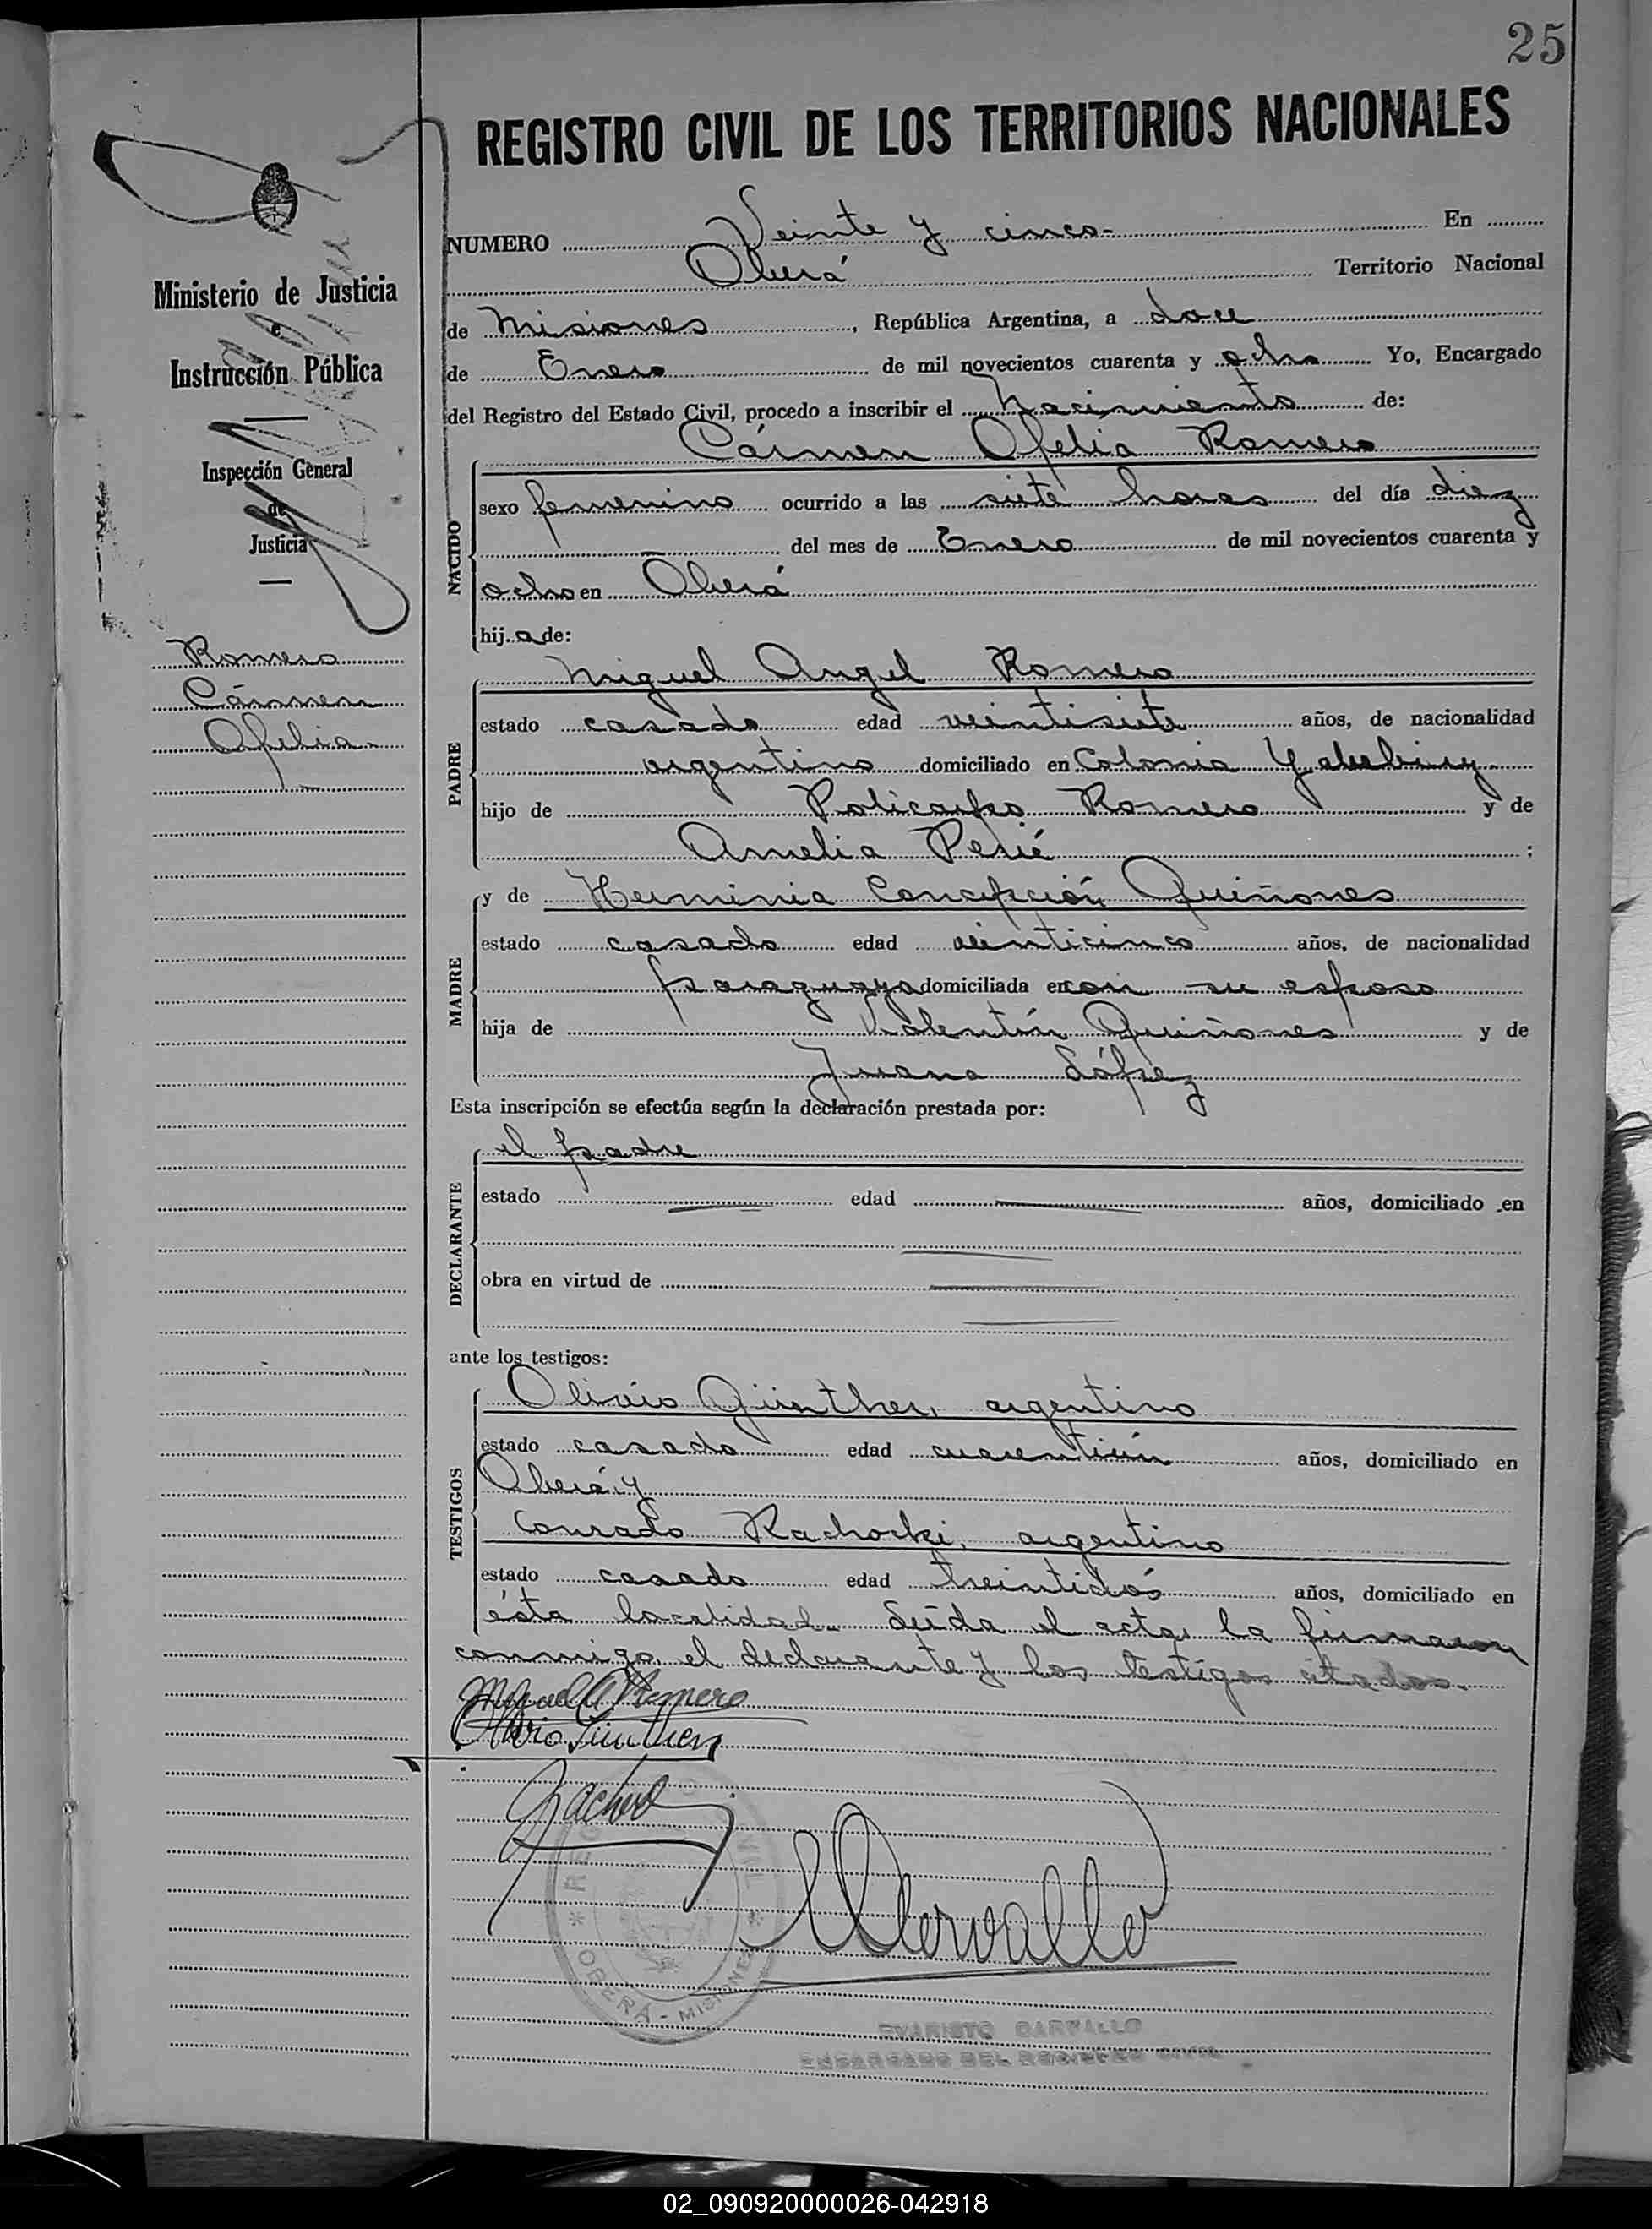 25
REGISTRO CIVIL DE LOS TERRITORIOS NACIONALES
Ministerio de Justicia
e
Instrucción Pública
Inspección General
de
Justicia
Romero
Cármen
Ofelia
NUMERO Veinte y cinco- En
Oberá Territorio Nacional
de Misiones, República Argentina, a doce
de Enero de mil novecientos cuarenta y ocho Yo, Encargado
del Registro del Estado Civil, procedo a inscribir el Nacimiento de:
NACIDO
Cármen Ofelia Romero
sexo femenino ocurrido a las siete horas del día diez
del mes de Enero de mil novecientos cuarenta y
ocho en Oberá
hij a de:
PADRE
Miguel Angel Romero
estado casado edad veintisiete años, de nacionalidad
argentino domiciliado en Colonia Yabebiry
hijo de Policarpo Romero y de
Amelia Perié ;
MADRE
y de Herminia Concepción Quiñones
estado casada edad veinticinco años, de nacionalidad
paraguaya domiciliada en con su esposo
hija de Valentín Quiñones y de
Juana López
Esta inscripción se efectúa según la declaración prestada por:
DECLARANTE
el padre
estado edad años, domiciliado en
obra en virtud de
ante los testigos:
TESTIGOS
Olivio Günther, argentino
estado casado edad cuarentiún años, domiciliado en
Oberá y
Conrado Rachocki, argentino
estado casado edad treintidós años, domiciliado en
ésta localidad. Leída el acta, la firmaron
conmigo el declarante y los testigos citados.
Miguel A Romero
Olivio Günther
REGISTRO CIVIL
* OBERÁ - MISIONES *
EVARISTO CARVALLO
ENCARGADO DEL REGISTRO CIVIL
02_090920000026-042918